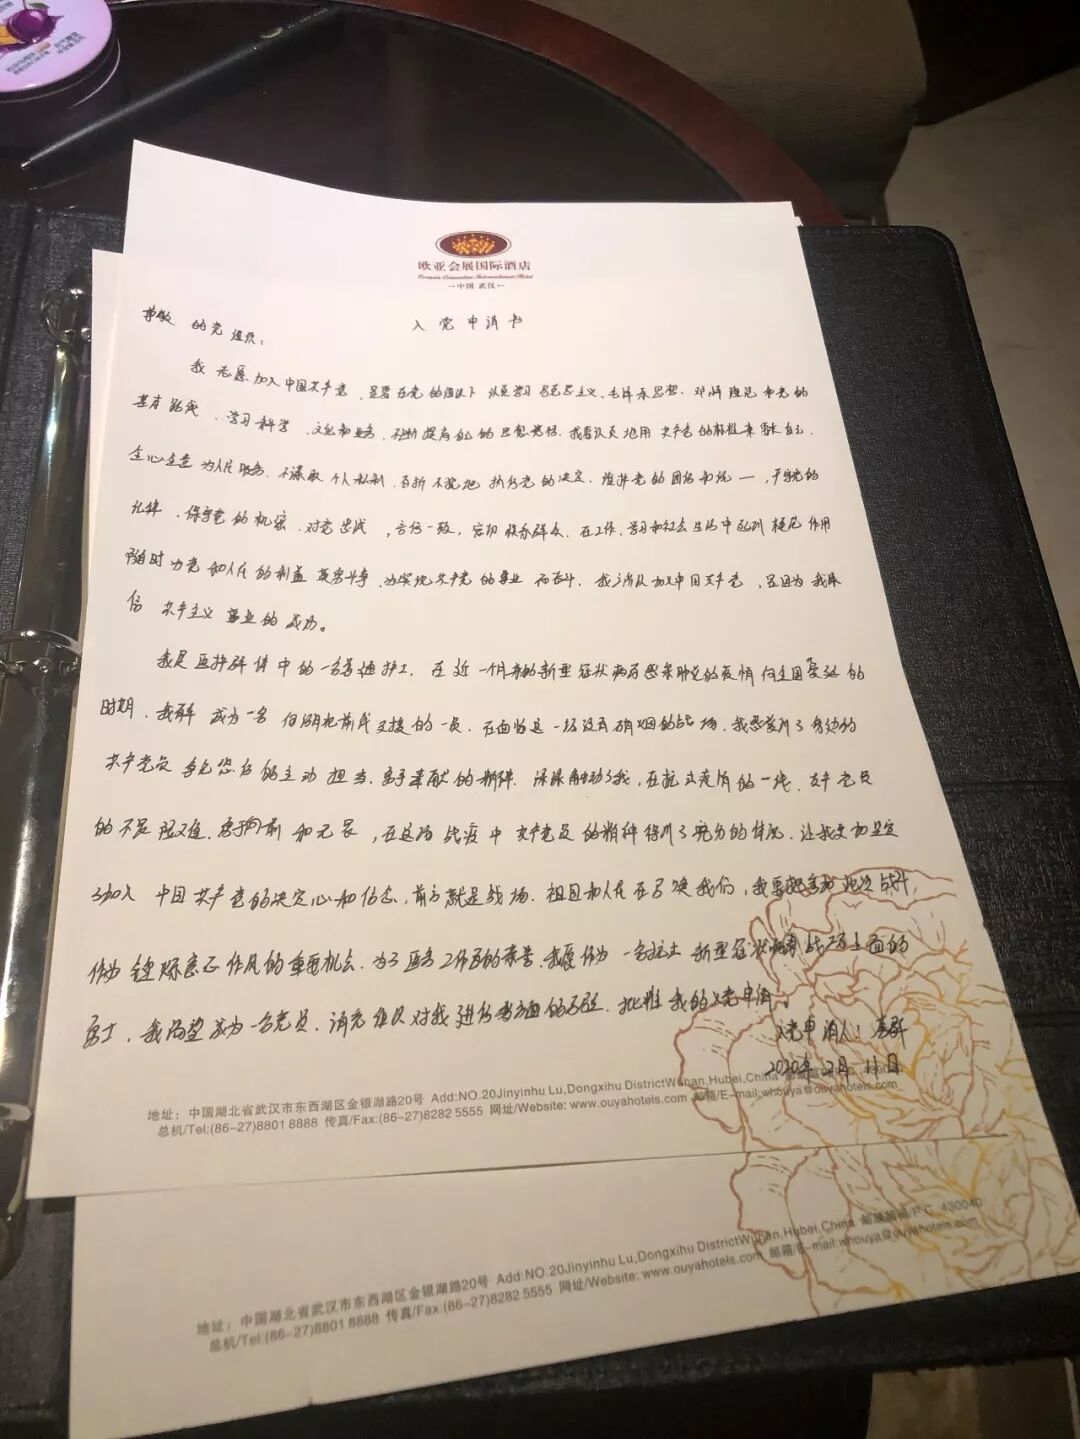 欧亚会展国际酒店
Eurasia Convention International Hotel
中国 武汉
入党申请书
尊敬的党组织：
我志愿加入中国共产党，是要在党的领导下，认真学习马克思主义、毛泽东思想、邓小平理论和党的
基本路线，学习科学、文化和业务，不断提高自己的思想觉悟。我要认真地用共产党的标准来要求自己，
全心全意为人民服务、不谋取个人私利，百折不挠地执行党的决定，维护党的团结和统一，严守党的
纪律，保守党的机密，对党忠诚，言行一致，密切联系群众，在工作，学习和社会生活中起到模范作用
随时为党和人民的利益英勇斗争，为实现共产党的事业而奋斗，我之所以加入中国共产党，是因为我深
信共产主义事业的成功。
我是医护群体中的一名普通护工，在近一个月来的新型冠状病毒感染肺炎的疫情向全国蔓延的
时期，我成为一名向湖北前线支援的一员，在面临这一场没有硝烟的战场，我感受到了身边的
共产党员争先恐后的主动担当，勇于奉献的精神，深深触动了我，在抗击疫情的一线，共产党员
的不畏艰难，勇于向前和无畏，在这场战疫中共产党员的精神得到了充分的体现，让我更加坚定
了加入中国共产党的决定心和信念，前方就是战场，祖国和人民在召唤我们，我要把参加此次战斗，
作为锤炼意志作风的重要机会，为了医务工作者的荣誉，我要作为一名护士新型冠状病毒战场上面的
勇士，我渴望成为一名党员，请党组织对我进行考验，批准我的入党申请。
入党申请人：
2020年2月11日
地址：中国湖北省武汉市东西湖区金银湖路20号 Add:NO.20Jinyinhu Lu,Dongxihu DistrictWuhan,Hubei,China
总机/Tel:(86-27)8801 8888 传真/Fax:(86-27)8282 5555 网址/Website: www.ouyahotels.com 邮箱/E-mail:whouya@ouyahotels.com
地址：中国湖北省武汉市东西湖区金银湖路20号 Add:NO.20Jinyinhu Lu,Dongxihu DistrictWuhan,Hubei,China 邮政编码/P.C. 430040
总机/Tel:(86-27)8801 8888 传真/Fax:(86-27)8282 5555 网址/Website: www.ouyahotels.com 邮箱/E-mail:whouya@ouyahotels.com